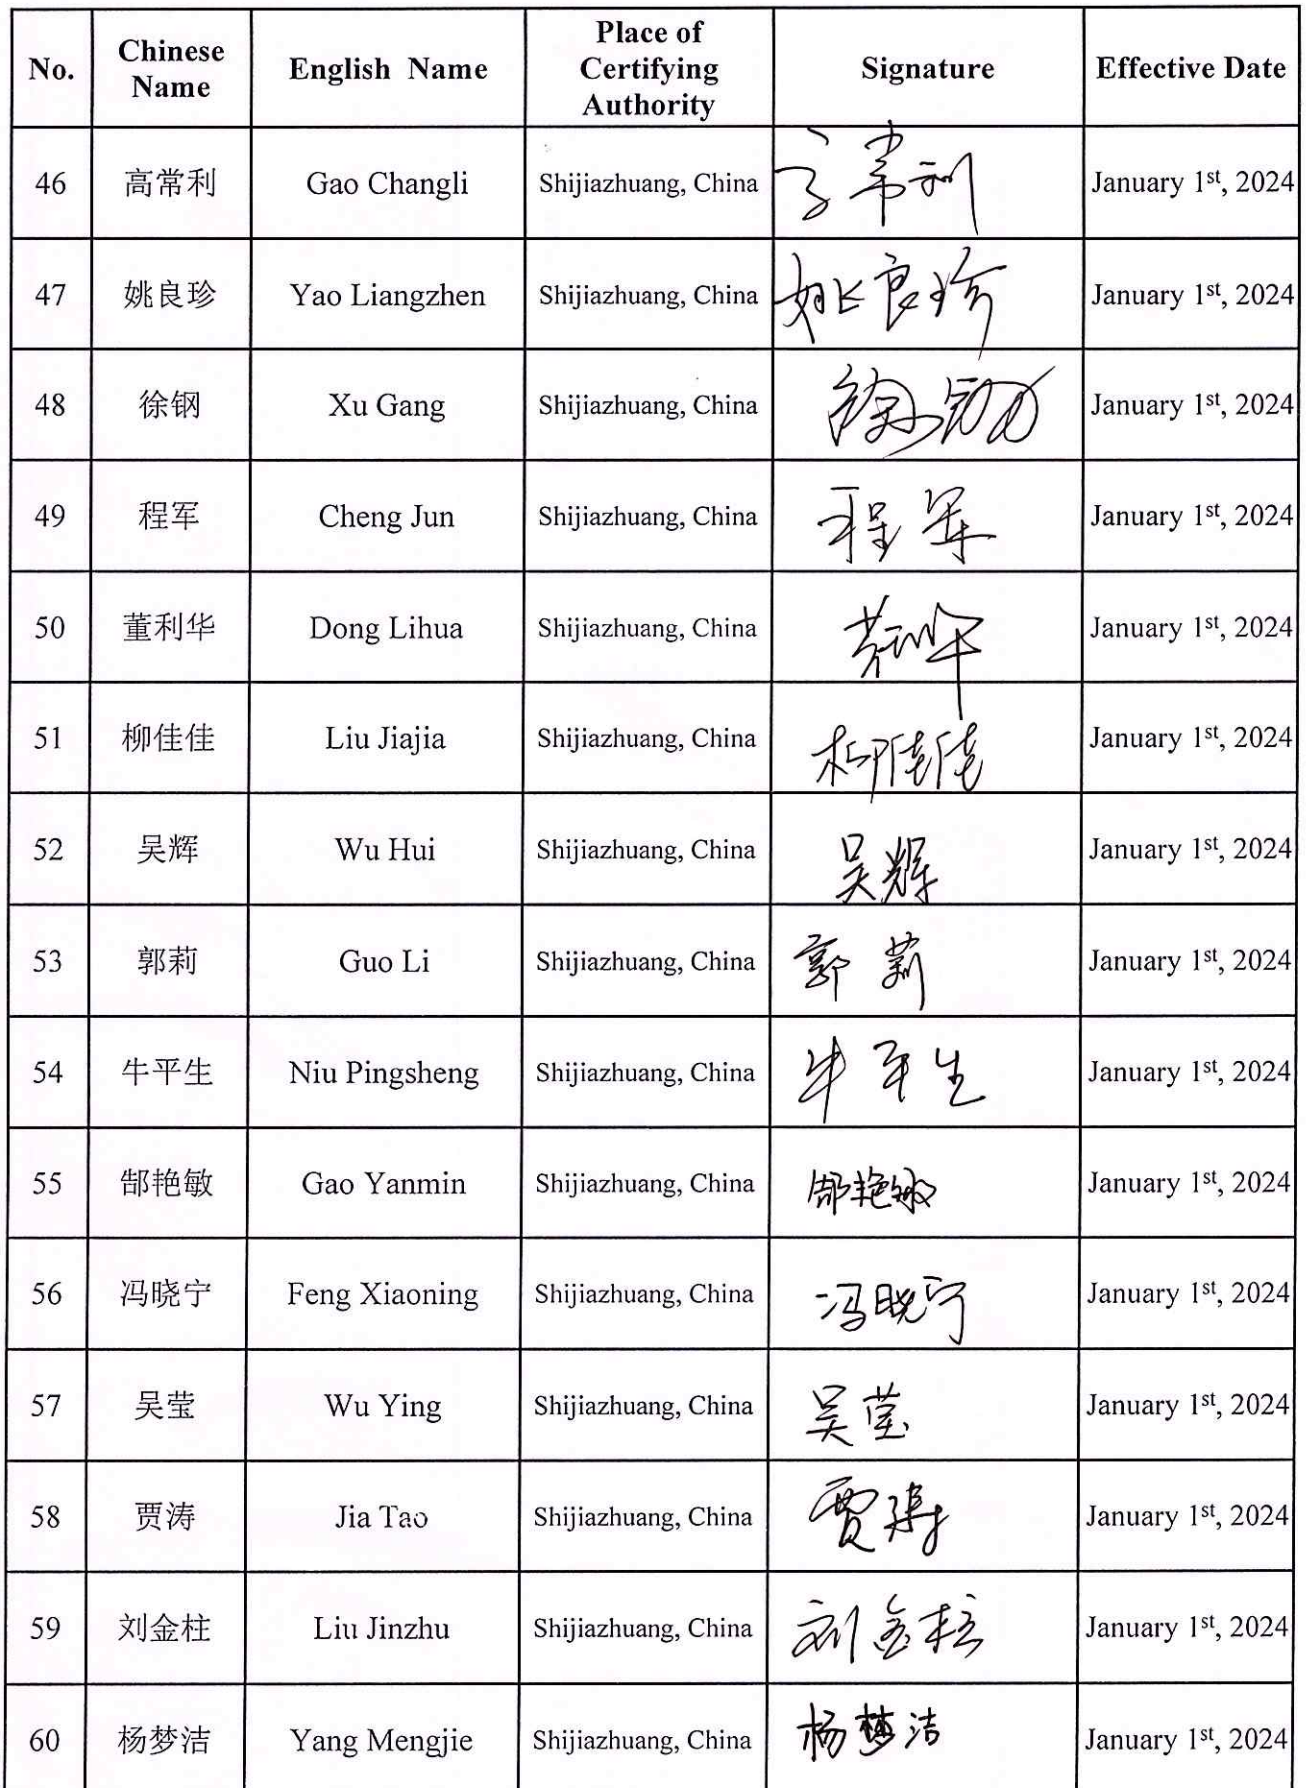 No. Chinese Name English Name Place of Certifying Authority Signature Effective Date
46 高常利 Gao Changli Shijiazhuang, China 高常利 January 1st, 2024
47 姚良珍 Yao Liangzhen Shijiazhuang, China 姚良珍 January 1st, 2024
48 徐钢 Xu Gang Shijiazhuang, China 徐钢 January 1st, 2024
49 程军 Cheng Jun Shijiazhuang, China 程军 January 1st, 2024
50 董利华 Dong Lihua Shijiazhuang, China 董利华 January 1st, 2024
51 柳佳佳 Liu Jiajia Shijiazhuang, China 柳佳佳 January 1st, 2024
52 吴辉 Wu Hui Shijiazhuang, China 吴辉 January 1st, 2024
53 郭莉 Guo Li Shijiazhuang, China 郭莉 January 1st, 2024
54 牛平生 Niu Pingsheng Shijiazhuang, China 牛平生 January 1st, 2024
55 郜艳敏 Gao Yanmin Shijiazhuang, China 郜艳敏 January 1st, 2024
56 冯晓宁 Feng Xiaoning Shijiazhuang, China 冯晓宁 January 1st, 2024
57 吴莹 Wu Ying Shijiazhuang, China 吴莹 January 1st, 2024
58 贾涛 Jia Tao Shijiazhuang, China 贾涛 January 1st, 2024
59 刘金柱 Liu Jinzhu Shijiazhuang, China 刘金柱 January 1st, 2024
60 杨梦洁 Yang Mengjie Shijiazhuang, China 杨梦洁 January 1st, 2024